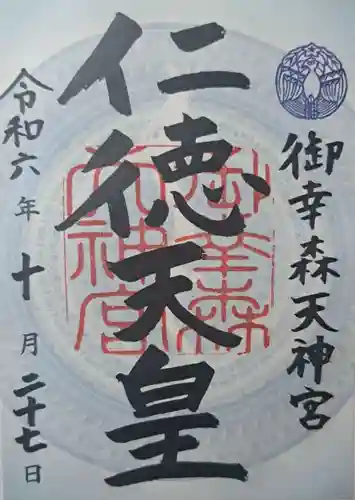 御幸森天神宮
仁徳天皇
御幸森
天神宮
令和六年十月二十七日